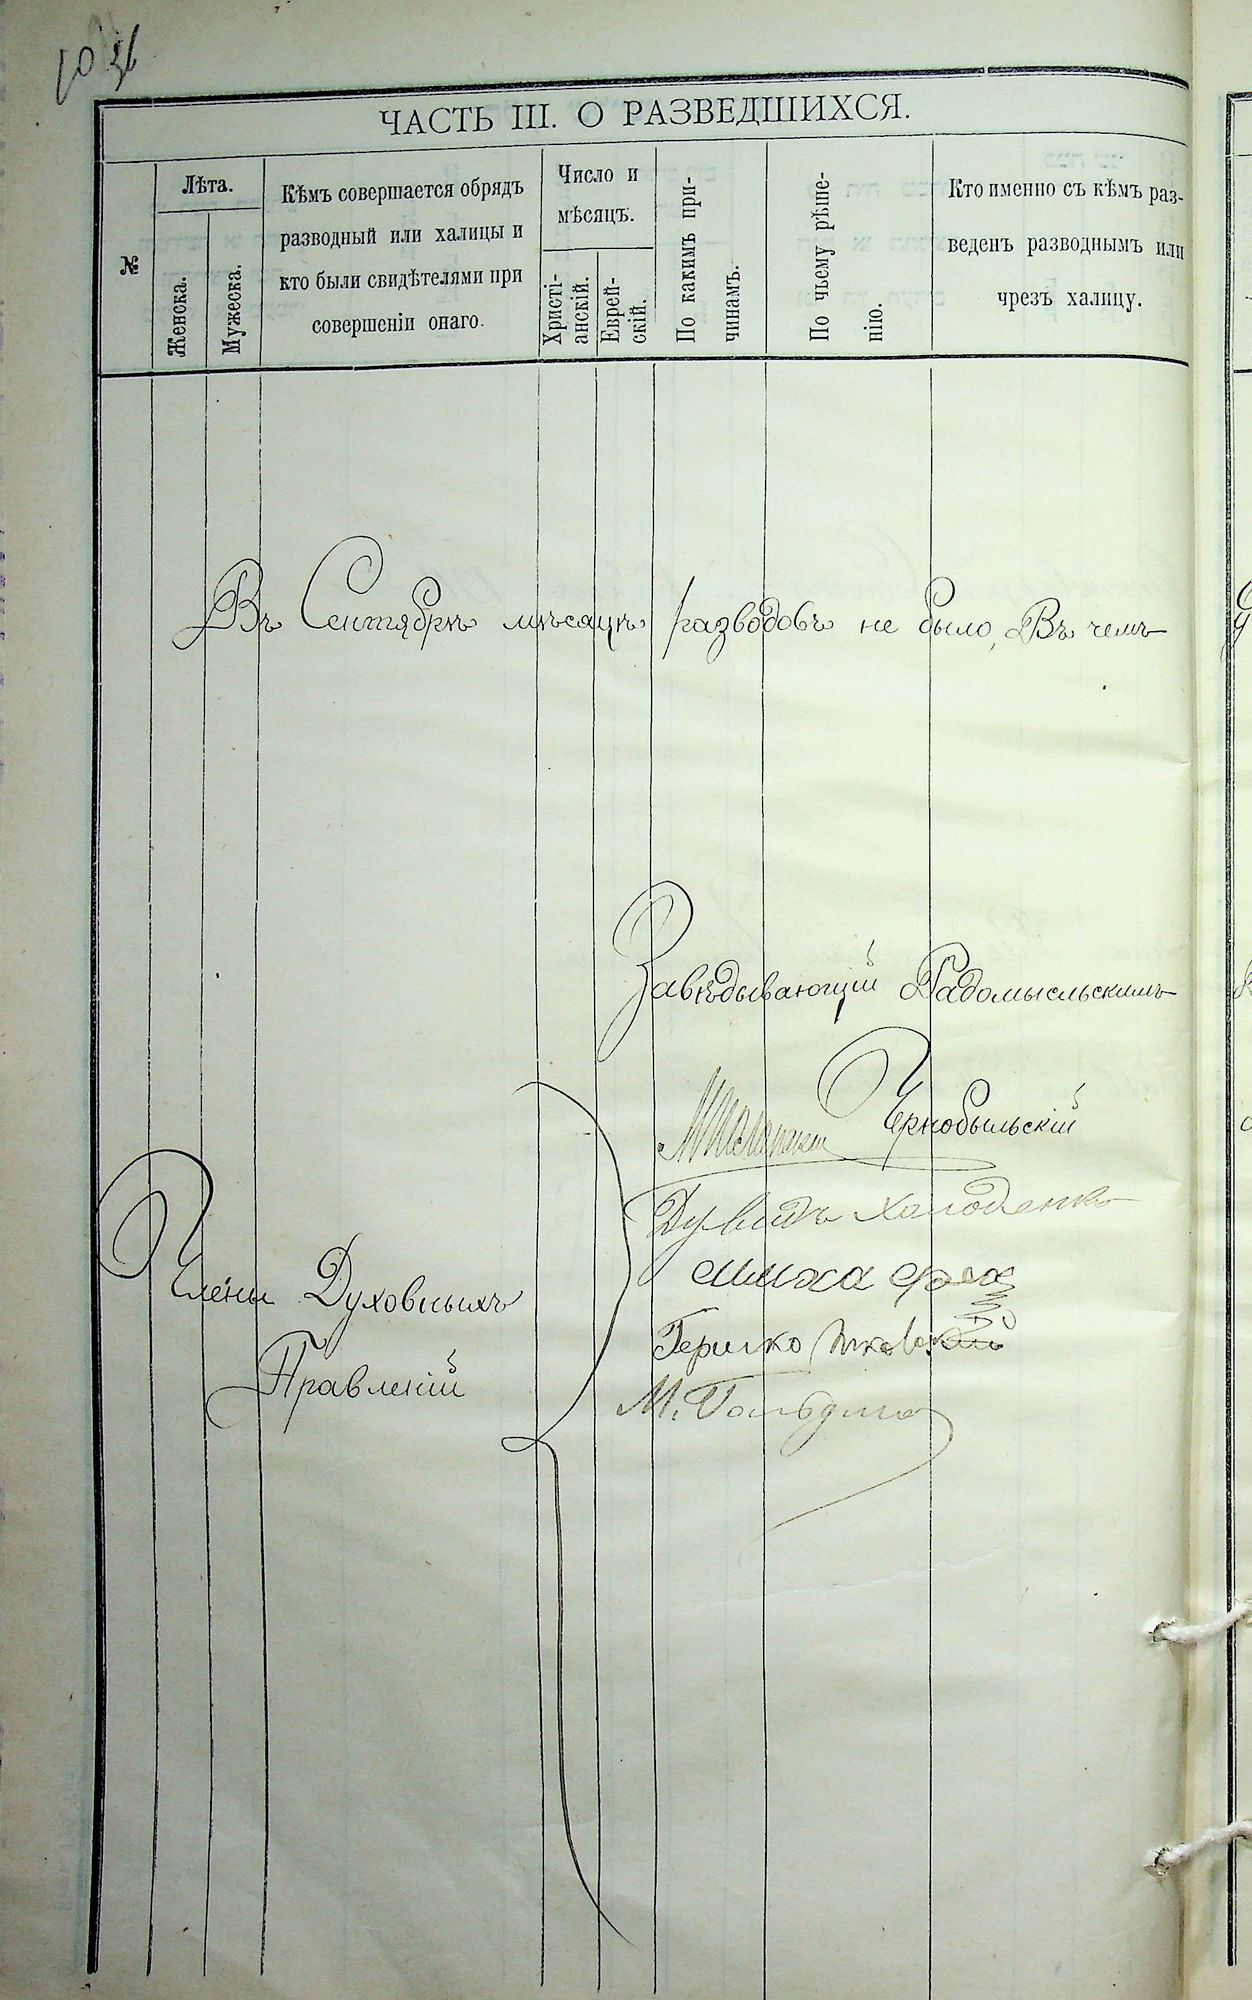 ЧАСТЬ III. О РАЗВЕДШИХСЯ.
№
Лѣта.
Женска.
Мужеска.
Кѣмъ совершается обрядъ
разводный или халицы и
кто были свидѣтелями при
совершеніи онаго.
Число и
мѣсяцъ.
Христі-
анскій.
Еврей-
скій.
По какимъ при-
чинамъ.
По чьему рѣше-
нію.
Кто именно съ кѣмъ раз-
веденъ разводнымъ или
чрезъ халицу.
Въ Сентябрѣ мѣсяцѣ разводовъ не было, Въ чемъ
Завѣдывающій Радомысльскимъ
Чернобыльскій
Дувидъ Холоденко
Члены Духовныхъ
Гершко
Правленій
М.